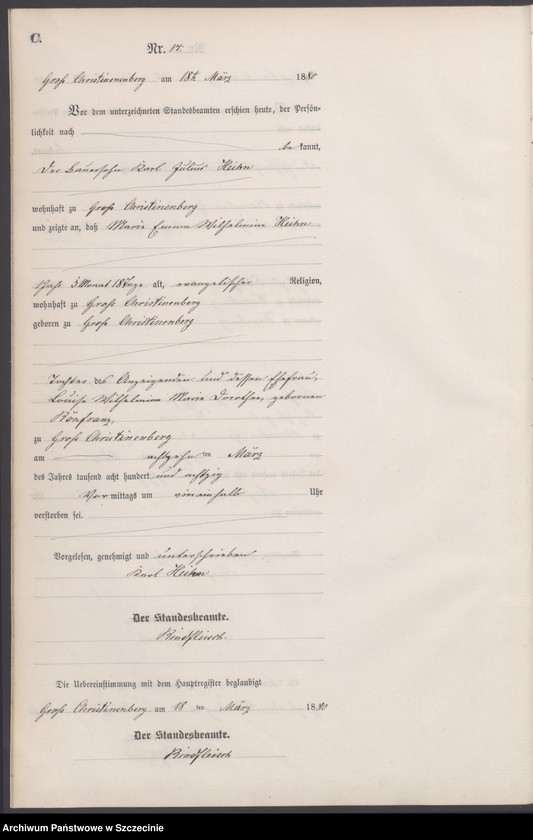 C.
Nr. 14.
Groß Christinenberg am 18ten März 1880
Vor dem unterzeichneten Standesbeamten erschien heute, der Persön-
lichkeit nach
be kannt,
der Bauersohn Karl Julius Heihn
wohnhaft zu Groß Christinenberg
und zeigte an, daß Marie Emma Wilhelmine Heihn
3 Monat 18 Tage alt, evangelischer Religion,
wohnhaft zu Groß Christinenberg
geboren zu Groß Christinenberg
Tochter des Anzeigenden und dessen Ehefrau,
Louise Wilhelmine Marie Dorothee, gebornen
zu Groß Christinenberg
am achtzehn ten März
des Jahres tausend acht hundert und achtzig
Vor mittags um vier einhalb Uhr
verstorben sei.
Vorgelesen, genehmigt und unterschrieben
Karl Heihn
Der Standesbeamte.
Rindfleisch.
Die Uebereinstimmung mit dem Hauptregister beglaubigt
Groß Christinenberg am 18 ten März 1880
Der Standesbeamte.
Rindfleisch
Archiwum Państwowe w Szczecinie